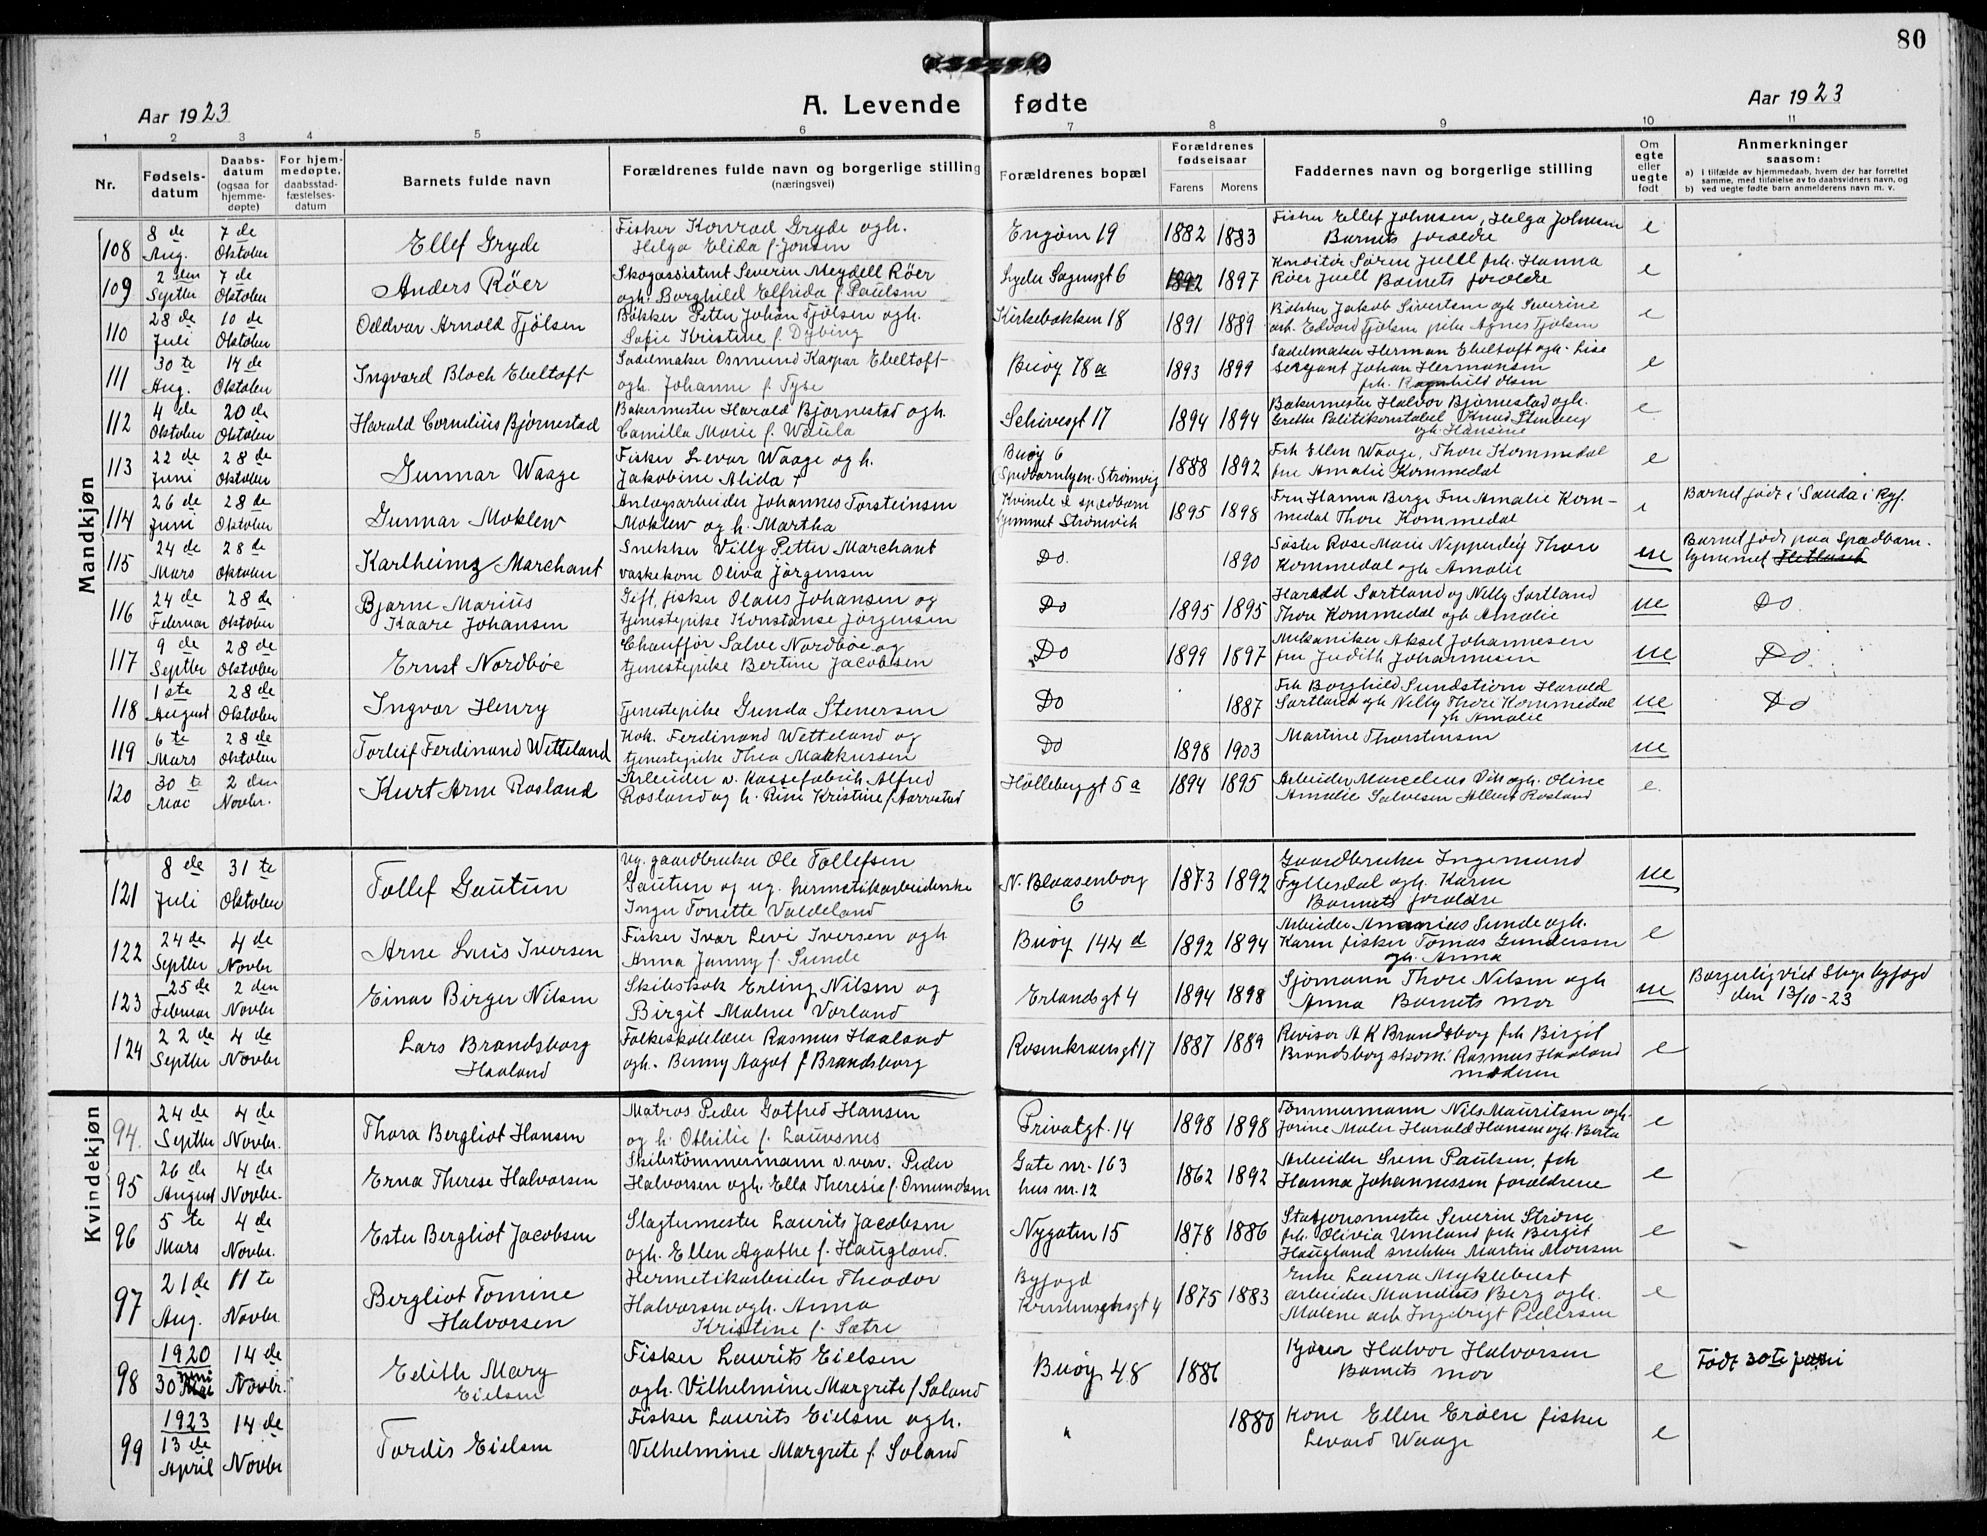 80
Aar 1923
A. Levende fødte
Aar 1923
1 2 3 4 5 6 7 8 9 10 11
Nr.
Fødsels-
datum
Daabs-
datum
(ogsaa for
hjemme-
døpte)
For hjem-
medøpte,
daabsstad-
fæstelses-
datum
Barnets fulde navn
Forældrenes fulde navn og borgerlige stilling
(næringsvei)
Forældrenes bopæl
Forældrenes
fødselsaar
Farens Morens
Faddernes navn og borgerlige stilling
Om
egte
eller
uegte
født
Anmerkninger
saasom:
a) i tilfælde av hjemmedaab, hvem der har forrettet
samme, med tilføielse av to daabsvidners navn, og
b) ved uegte fødte barn anmelderens navn m. v.
Mandkjøn
108 8de Aug. 7de Oktober Ellef Gryde
Fisker Konrad Gryde ogh.
Helga Elida f. Jonsen
Engøen 19 1882 1883
Fisker Ellef Johnsen, Helga Johnsen
Barnets forældre
e
109 2den Septbr 7de Oktober Anders Røer
Skogassistent Severin Meydell Røer
ogh. Borghild Elfrida f. Paulsen
Lyder Sagensgt 6 1892 1897
Konditor Søren Juell frk. Hanna
Røer Juell Barnets forældre
e
110 28de Juli 10de Oktober Oddvar Arnold Tjølsen
Bøkker Petter Johan Tjølsen ogh.
Sofie Kristine f. Dybing
Kirkebakken 18 1891 1889
Bøkker Jakob Sivertsen ogh Severine
arb. Edvard Tjølsen pike Agnes Tjølsen
e
111 30te Aug. 14de Oktober Ingvard Bloch Ebeltoft
Sadelmaker Osmund Kaspar Ebeltoft
ogh. Johanne f. Tyse
Buøy 78a 1893 1899
Sadelmaker Herman Ebeltoft ogh. Lise
Sersjant Johan Hermansen
frk. Ragnhild Olsen
e
112 4de Oktober 20de Oktober Harald Cornelius Bjørnestad
Bakermester Harald Bjørnestad ogh.
Camilla Marie f. Waula
Schivesgt 17 1894 1894
Bakermester Halvor Bjørnestad ogh.
Grethe Politikonstabel Knud Stenberg
ogh. Hansine
e
113 22de Juni 28de Oktober Gunnar Waage
Fisker Levar Waage og h.
Jakobine Alida f
Buøy 6
(Spedbarnhjem. Strømvig 1888 1892
Frk Ellen Waage, Thore Kommedal
fru Amalie Kommedal
e
114 26de Juni 28de Oktober Gunnar Moklew
Anlægsarbeider Johannes Torsteinsen
Moklew og h. Martha
Kvinde & spædbarn
hjemmet Strømvik 1895 1898
Fru Hanna Berge Fru Amalie Kom-
medal Thore Kommedal
e
Barnet født i Sauda i Ryf.
115 24de Mars 28de Oktober Karlheinz Marchant
Snekker Villy Petter Marchant
vaskekone Oliva Jørgensen
Do. 1890
Søster Rose Marie Nepperdey Thore
Kommedal ogh Amalie
ue
Barnet født paa Spædbarn.
hjemmet
116 24de Februar 28de Oktober Bjarne Marius
Kaare Johansen
Gift, fisker Olaus Johansen og
tjenestepike Konstanse Jørgensen
Do 1895 1895
Harald Sørtland og Nelly Sørtland
Thore Kommedal ogh Amalie
ue
Do.
117 9de Septbr 28de Oktober Ernst Nordbøe
Chauffør Salve Nordbøe og
tjenestepike Bertine Jacobsen
Do 1899 1897
Mekaniker Aksel Johannesen
fru Judith Johannesen
ue
Do.
118 1ste August 28de Oktober Ingvar Henry
Tjenestepike Gunda Stenersen
Do 1887
Frk Borghild Sundstrøm Harald
Sørtland ogh Nelly Thore Kommedal
ogh Amalie
ue
Do
119 6te Mars 28de Oktober Torleif Ferdinand Wetteland
Kok. Ferdinand Wetteland og
tjenestepike Thea Markussen
Do 1898 1903
Martine Thorstensen
ue
120 30te Mai 2den Novbr. Kurt Arne Rosland
Arbeider v. Kassefabrik Alfred
Rosland og h. Rine Kristine f. Aarrestad
Hölleberggt 5a 1894 1895
Arbeider Marcelius Vik ogh. Oline
Amalie Salvesen Albert Rosland
e.
121 8de Juli 31te Oktober Tollef Gautun
Ug. gaardbruker Ole Tollefsen
Gautun og ug. hermetikarbeiderske
Inger Tonette Valdeland
N. Blaasenborg
6 1873 1892
Gaardbruker Ingemund
Fyllesdal ogh. Karen
Barnets forældre
ue
122 24de Septbr 4de Novbr Arne Luis Iversen
Fisker Ivar Levi Iversen ogh
Anna Janny f. Sunde
Buøy 144d 1892 1894
Arbeider Ananias Sunde ogh.
Karen fisker Tomas Gundersen
ogh. Anna
e
123 25de Februar 2den Novbr Einar Birger Nilsen
Skibskok Erling Nilsen og
Birgit Malene Vørland
Erlandsgt 4 1894 1898
Sjømann Thore Nilsen ogh
Anna Barnets mor
ue
Borgerlig viet Stgr byfogd
den 13/10-23
124 22de Septbr 4de Novbr Lars Brandsborg
Haaland
Folkeskolelærer Rasmus Haaland
ogh. Benny Aagot f Brandsborg
Rosenkransgt 17 1887 1889
Revisor A K Brandsborg frk Birgit
Brandsborg skom. Rasmus Haaland
moderen
e
Kvindekjøn
94. 24de Septbr 4de Novbr. Thora Bergliot Hansen
Matros Peder Gotfred Hansen
og h. Othilie f. Lauvsnes
Privatgt. 14 1898 1898
Tømmermann Nils Mauritsen ogh.
Jorine Maler Harald Hansen ogh. Berta
e
95 26de August 4de Novbr. Erna Therese Halvorsen
Skibstømmermann v. verv. Peder
Halvorsen ogh. Ella Theresia f. Omundsen
Gate nr. 163
hus nr. 12 1862 1892
Arbeider Sven Paulsen, frk
Hanna Johannessen forældrene
e
96 5te Mars 4de Novbr. Ester Bergliot Jacobsen
Slagtermester Laurits Jacobsen
ogh. Ellen Agathe f. Haugland.
Nygaten 15 1878 1886
Stasjonsmester Severin Strøm
frk. Olivia Umland frk Bergit
Haugland snekker Martin Monsen
e
97 21de Aug. 11te Novbr. Bergliot Tomine
Halvorsen
Hermetikarbeider Theodor
Halvorsen ogh. Anna
Kristine f. Sætre
Byfogd
1875 1883
Enke Laura Myklebust
arbeider Mandius Berg ogh.
Malene arb Ingebrigt Pedersen
e
98 1920 30 juni 14de Novbr. Edith Mary
Eielsen
Fisker Laurits Eielsen
ogh. Vilhelmine Margrete f Soland
Buøy 48 1886
Kjører Halvor Halvorsen
Barnets mor
e
Født 30te juni
99 1923 13de April 14de Novbr Tordis Eielsen
Fisker Laurits Eielsen ogh.
Vilhelmine Margrete f. Soland
" 1880
Kone Ellen Erøen fisker
Levard Waage
e